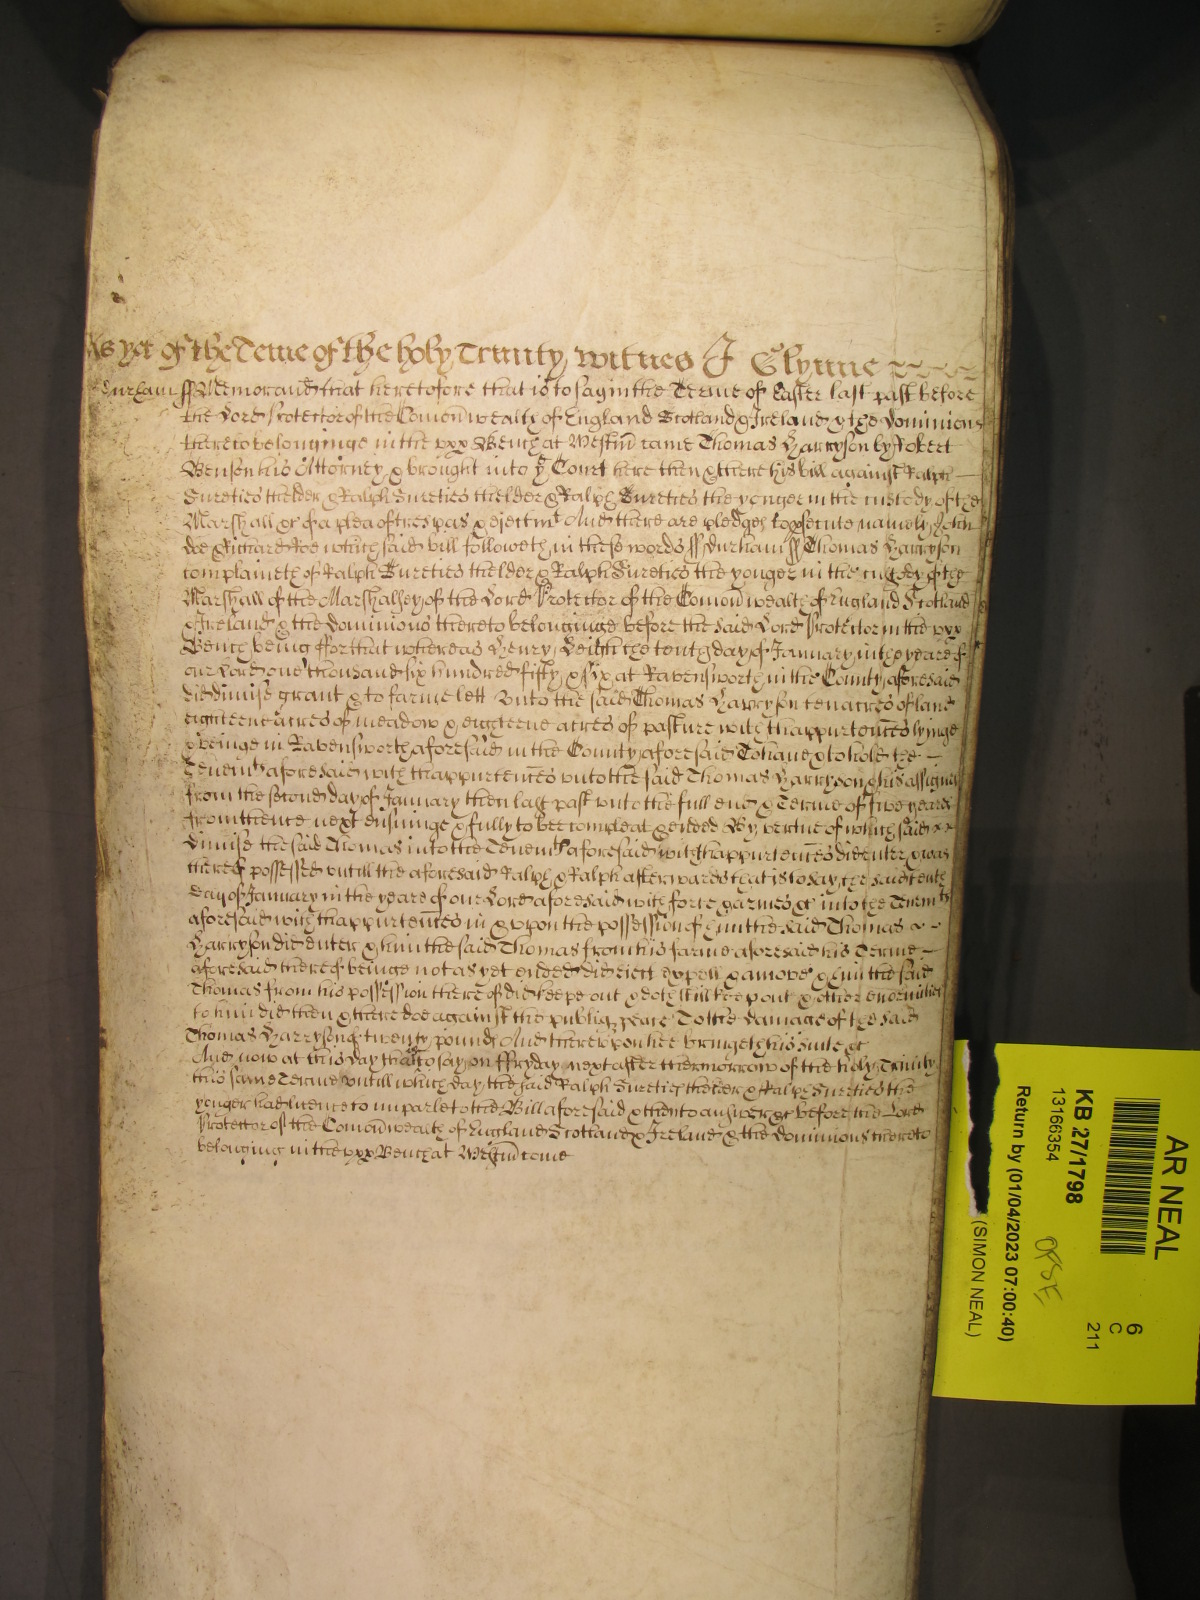 As yet of the Terme of the holy Trinity witnes J Glynne
Durham ss Memorand that heretofore that is to say in the Terme of Easter last past before
the Lord Protector of the Comon wealth of England Scotland & Ireland & the Dominions
thereto belonginge in the vpp Bench at Westm came Thomas Harryson by Robert
Benson his Attorney & brought into ye Court here then & there his bill against Ralph
Sureties thelder & Ralph Sureties thelder & Ralph Sureties the yonger in the custody of the
Marshall &c of a plea of trespas & ejectmt And there are pledges to prosecute namely John
doe & Richard Roe which said bill followeth in these words ss Durham ss Thomas Harryson
complaineth of Ralph Sureties thelder & Ralph Sureties the yonger in the custody of the
Marshall of the Marshalsey of the Lord Protector of the Comon wealth of England Scotland
& Ireland & the Dominions thereto belonginge before the said Lord Protector in the vpp
Bench being ffor that whereas Henry the tenth day of January in the yeare of
our Lord one thousand six hundred fifty & six at Ravensworth in the County aforesaid
did dimise grant & to farme lett vnto the said Thomas Harryson ten acres of land
eighteene acres of meadow & eighteene acres of pasture with thappurtences lyinge
& beinge in Ravensworth aforesaid in the County aforesaid To have & to hold the
Tenemts aforesaid with thappurtences vnto the said Thomas Harryson & his assignes
from the second day of January then last past vnto the full end & Terme of five yeares
from thence next ensuinge & fully to bee compleat & ended By vertue of which said
Dimise the said Thomas into the Tenemts aforesaid with thappurtences did enter & was
thereof possessed vntill the aforesaid Ralph & Ralph afterwards that is to say the said tenth
day of January in the yeare of our Lord aforesaid with force & armes &c into the Tenemts
aforesaid with thappurtences in & vpon the possession of him the said Thomas
Harryson did enter & him the said Thomas from his farme aforesaid his Terme
aforesaid thereof beinge not as yet ended did eject expell & amove & him the said
Thomas from his possession thereof did keepe out & doth still keep out & other enormities
to him did then & there doe against the publiq peace To the damage of the said
Thomas Harryson of twenty pounds And therevpon hee bringeth his suite &c
And now at this day that is to say on ffryday next after the morrow of the holy Trinity
this same Terme vntill which day the said Ralph Sureties thelder & Ralph Sureties the
yonger had licence to imparle to the Bill aforesaid & then to answer &c before the Lord
Protector of the Comon wealth of England Scotland & Ireland & the dominions thereto
belonging in the vpp Bench at Westm come
AR NEAL
6
C
211
KB 27/1798
13166354
Return by (01/04/2023 07:00:40)
(SIMON NEAL)